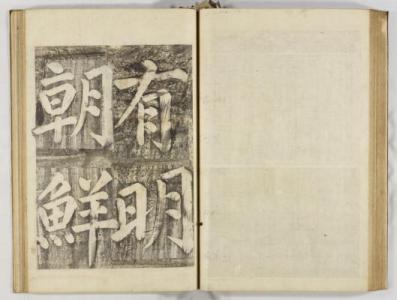 有明
朝鮮